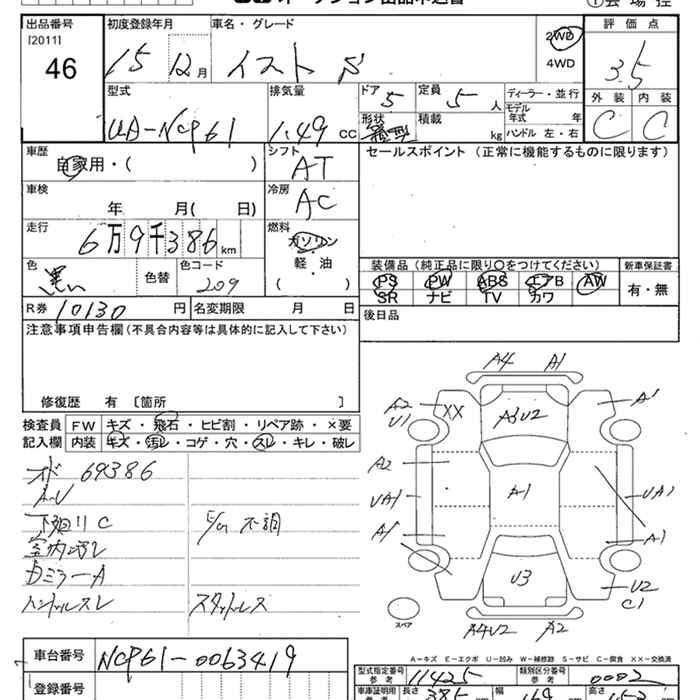 出品番号
[2011]
46
初度登録年月
15 12月
車名・グレード
イスト S
2WD
4WD
評価点
3.5
外装 内装
C C
型式
UA-NCP61
排気量
1.49 CC
ドア 5
定員 5 人
形状
積載 kg
ディーラー・並行
モデル年式 年
ハンドル 左・右
車歴
自家用・( )
シフト
AT
車検
年 月( 日)
冷房
AC
走行
6万9千386km
燃料
ガソリン
軽・油
( )
色
黒
色替
色コード
209
R券 10130 円
名変期限 月 日
セールスポイント (正常に機能するものに限ります)
装備品 (純正品に限り○をつけてください)
新車保証書
PS PW ABS エアB AW
SR ナビ TV カワ
有・無
後日品
注意事項申告欄 (不具合内容等は具体的に記入して下さい)
修復歴 有 〔箇所 〕
検査員記入欄
FW キズ・飛石・ヒビ割・リペア跡・×要
内装 キズ・汚レ・コゲ・穴・スレ・キレ・破レ
オド 69386
A・U
下廻りC
E/G 不調
室内汚レ
Dミラー A
ハンドルスレ
スタッドレス
A4 A1
A2 U1 XX
A3U2
A1
A2
UA1
A1
A1
UA1
A1
U3
U2
C1
A4U2 A2
スペア
A-キズ E-エクボ U-凹み W-補修跡 S-サビ C-腐食 XX-交換済
車台番号
NCP61-0063419
登録番号
型式指定番号 参考 11425
類別区分番号 参考 0002
車庫証明用 参考
長さ 385
幅 169
高さ 153